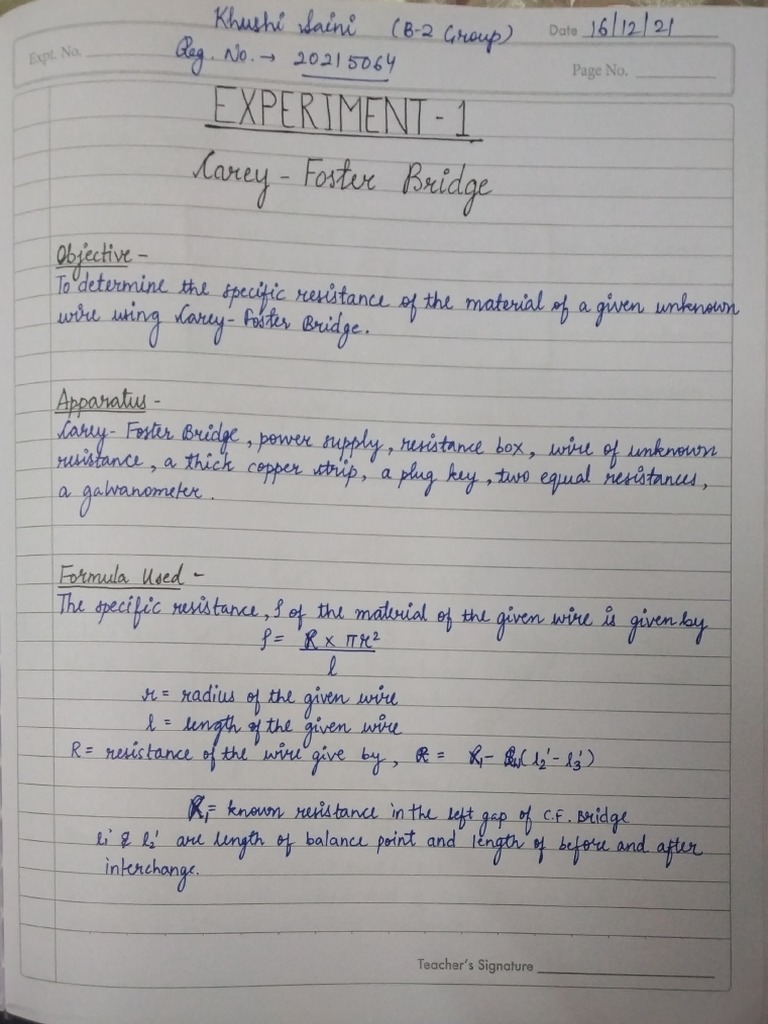 Khushi Saini (B-2 Group) Date 16/12/21
Expt. No. Reg. No. → 20215064
Page No.
EXPERIMENT - 1
Carey - Foster Bridge
Objective -
To determine the specific resistance of the material of a given unknown
wire using Carey - Foster Bridge.
Apparatus -
Carey - Foster Bridge, power supply, resistance box, wire of unknown
resistance, a thick copper strip, a plug key, two equal resistances,
a galvanometer.
Formula Used -
The specific resistance, ρ of the material of the given wire is given by
ρ = R × πr²
l
r = radius of the given wire
l = length of the given wire
R = resistance of the wire give by, R = R₁ - (l₂' - l₃')
R₁ = known resistance in the left gap of C.F. Bridge
l₁' & l₂' are length of balance point and length of before and after
interchange.
Teacher's Signature